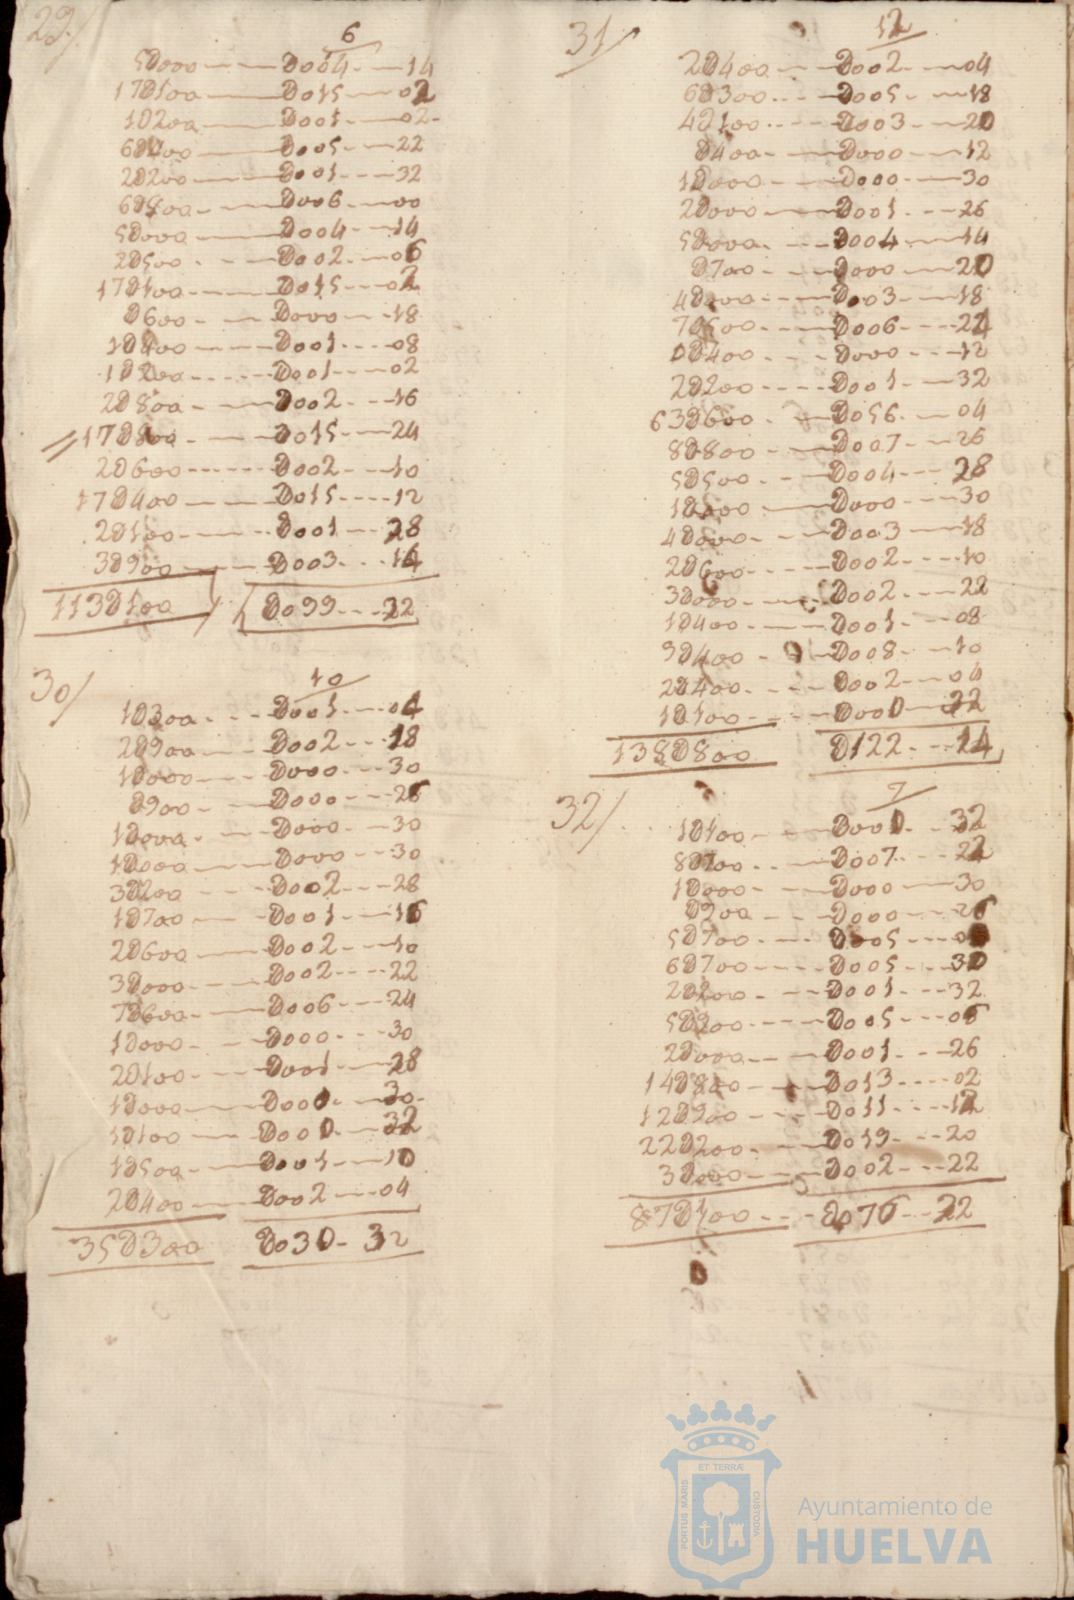 29/
6
5D000 D004 14
17D100 D015 02
1D200 D001 02
6D400 D005 22
2D200 D001 32
6D800 D006 00
5D000 D004 14
2D500 D002 06
17D100 D015 02
D600 D000 18
1D400 D001 08
1D200 D001 02
2D800 D002 16
17D800 D015 24
2D600 D002 10
17D400 D015 12
2D100 D001 28
3D900 D003 14
113D100 D099 22
30/
10
1D300 D001 04
2D900 D002 18
1D000 D000 30
D900 D000 26
1D000 D000 30
1D000 D000 30
3D200 D002 28
1D700 D001 16
2D600 D002 10
3D000 D002 22
7D600 D006 24
1D000 D000 30
2D100 D001 28
1D000 D000 30
1D100 D000 32
1D500 D001 10
2D400 D002 04
35D300 D030 32
31/
12
2D400 D002 04
6D300 D005 18
4D100 D003 20
D400 D000 12
1D000 D000 30
2D000 D001 26
5D000 D004 14
D700 D000 20
4D000 D003 18
7D500 D006 22
D400 D000 12
2D200 D001 32
63D600 D056 04
8D800 D007 26
5D500 D004 28
1D000 D000 30
4D000 D003 18
2D600 D002 10
3D000 D002 22
1D400 D001 08
9D400 D008 10
2D400 D002 04
1D100 D000 32
138D800 D122 14
32/
7
1D100 D000 32
8D700 D007 22
1D000 D000 30
D900 D000 26
5D700 D005
6D700 D005 30
2D200 D001 32
5D900 D005 06
2D000 D001 26
14D800 D013 02
12D900 D011 12
22D200 D019 20
3D000 D002 22
87D100 D076 22
ET TERRÆ
PORTUS MARIS
CUSTODIA
Ayuntamiento de
HUELVA